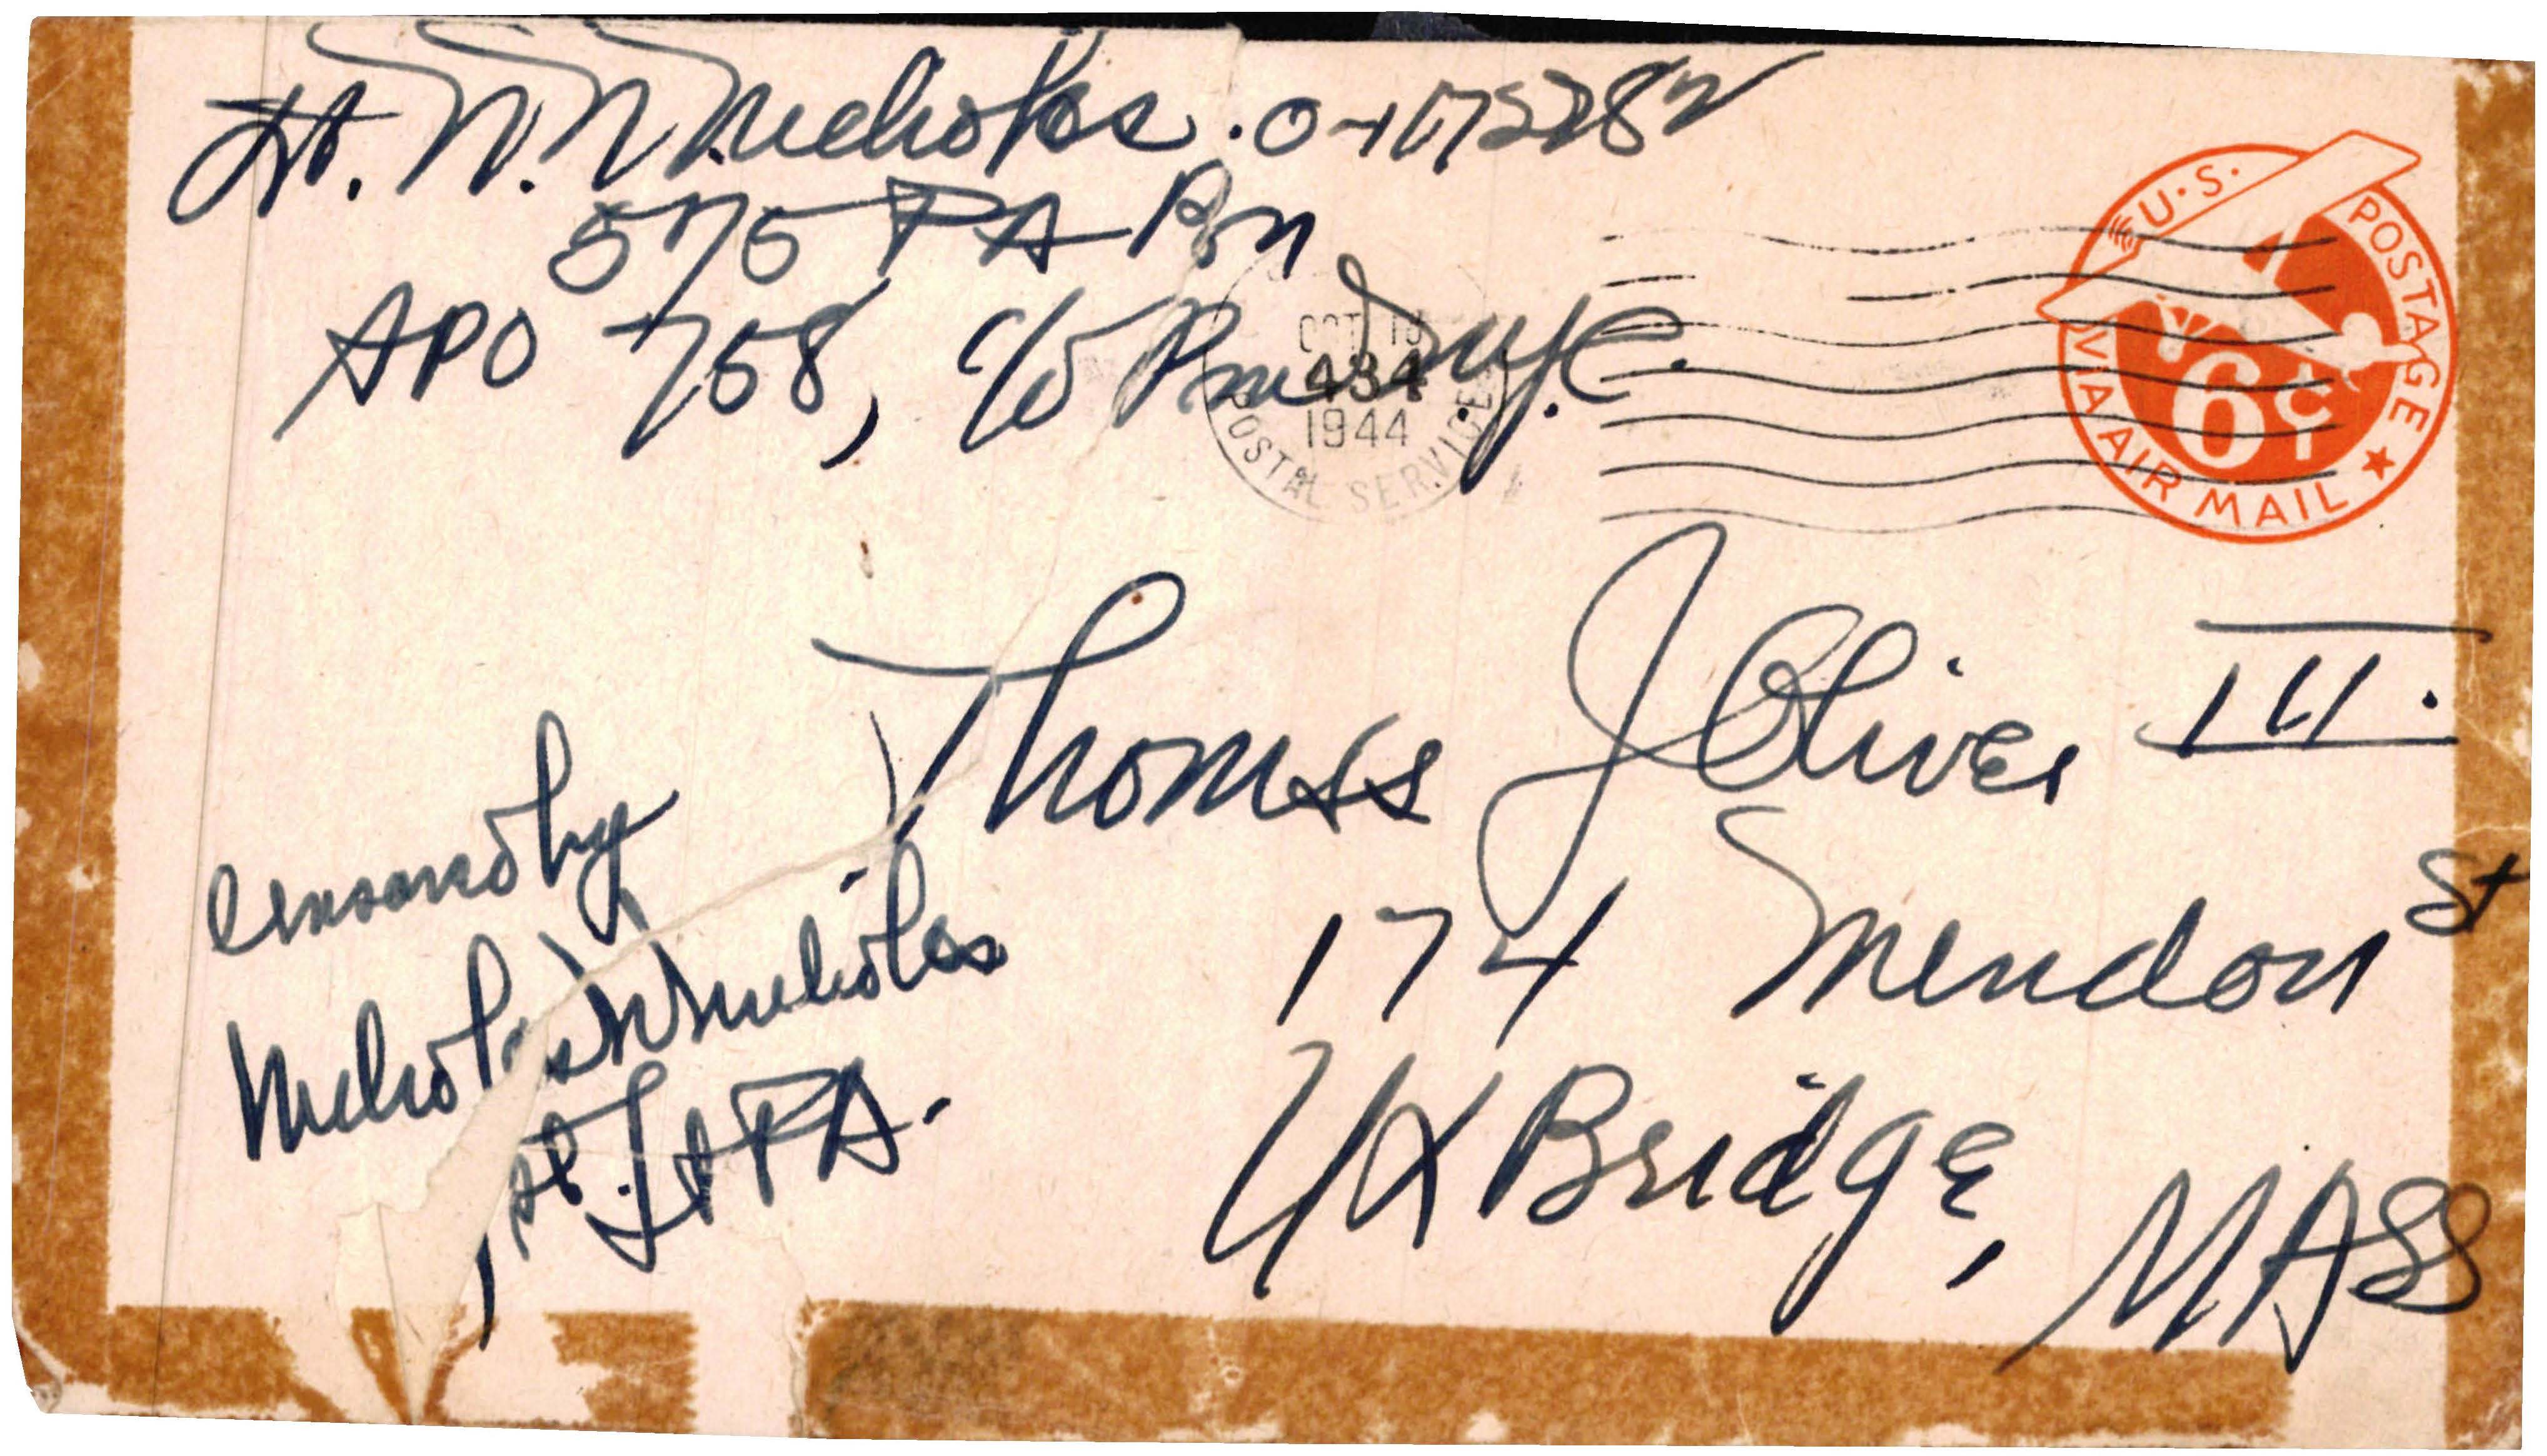 Lt. N. N. Nicholas. O-1175282
575 FA Bn
APO 758, c/o Pm. N.Y.C.
OCT 13
434
1944
POSTAL SERVICE
U.S. POSTAGE
6¢
VIA AIR MAIL
Thomas J Oliver III.
174 Mendon St
UXBridge, MASS
Censored by
Nicholas N Nicholas
1st Lt FA.